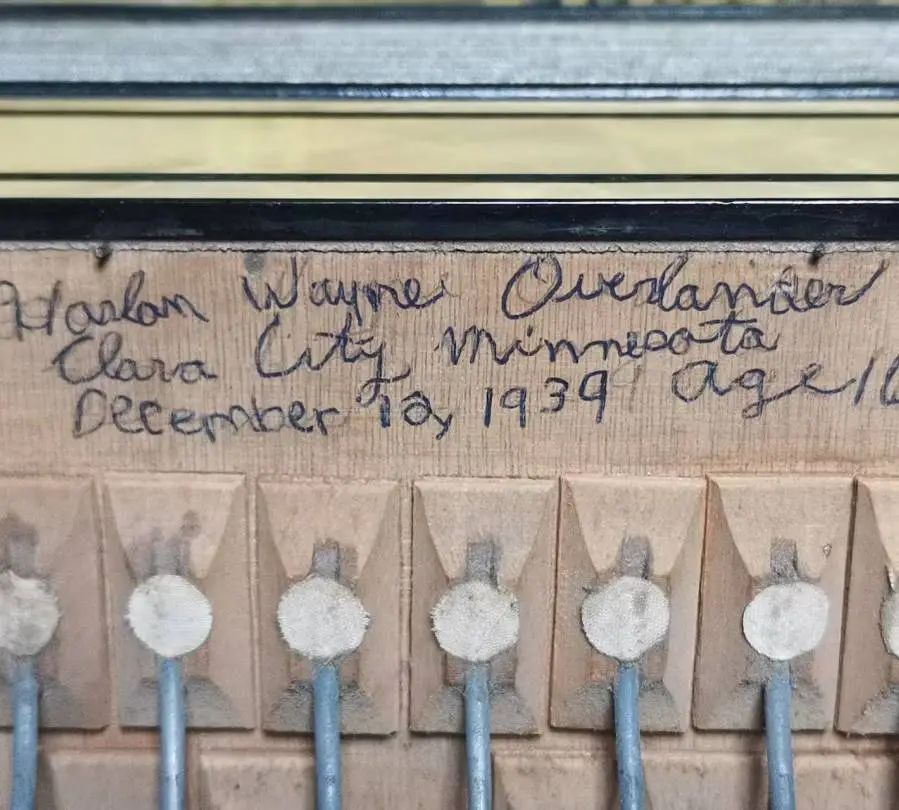 Harlan Wayne Overlander
Clara City Minnesota
December 12, 1939 Age